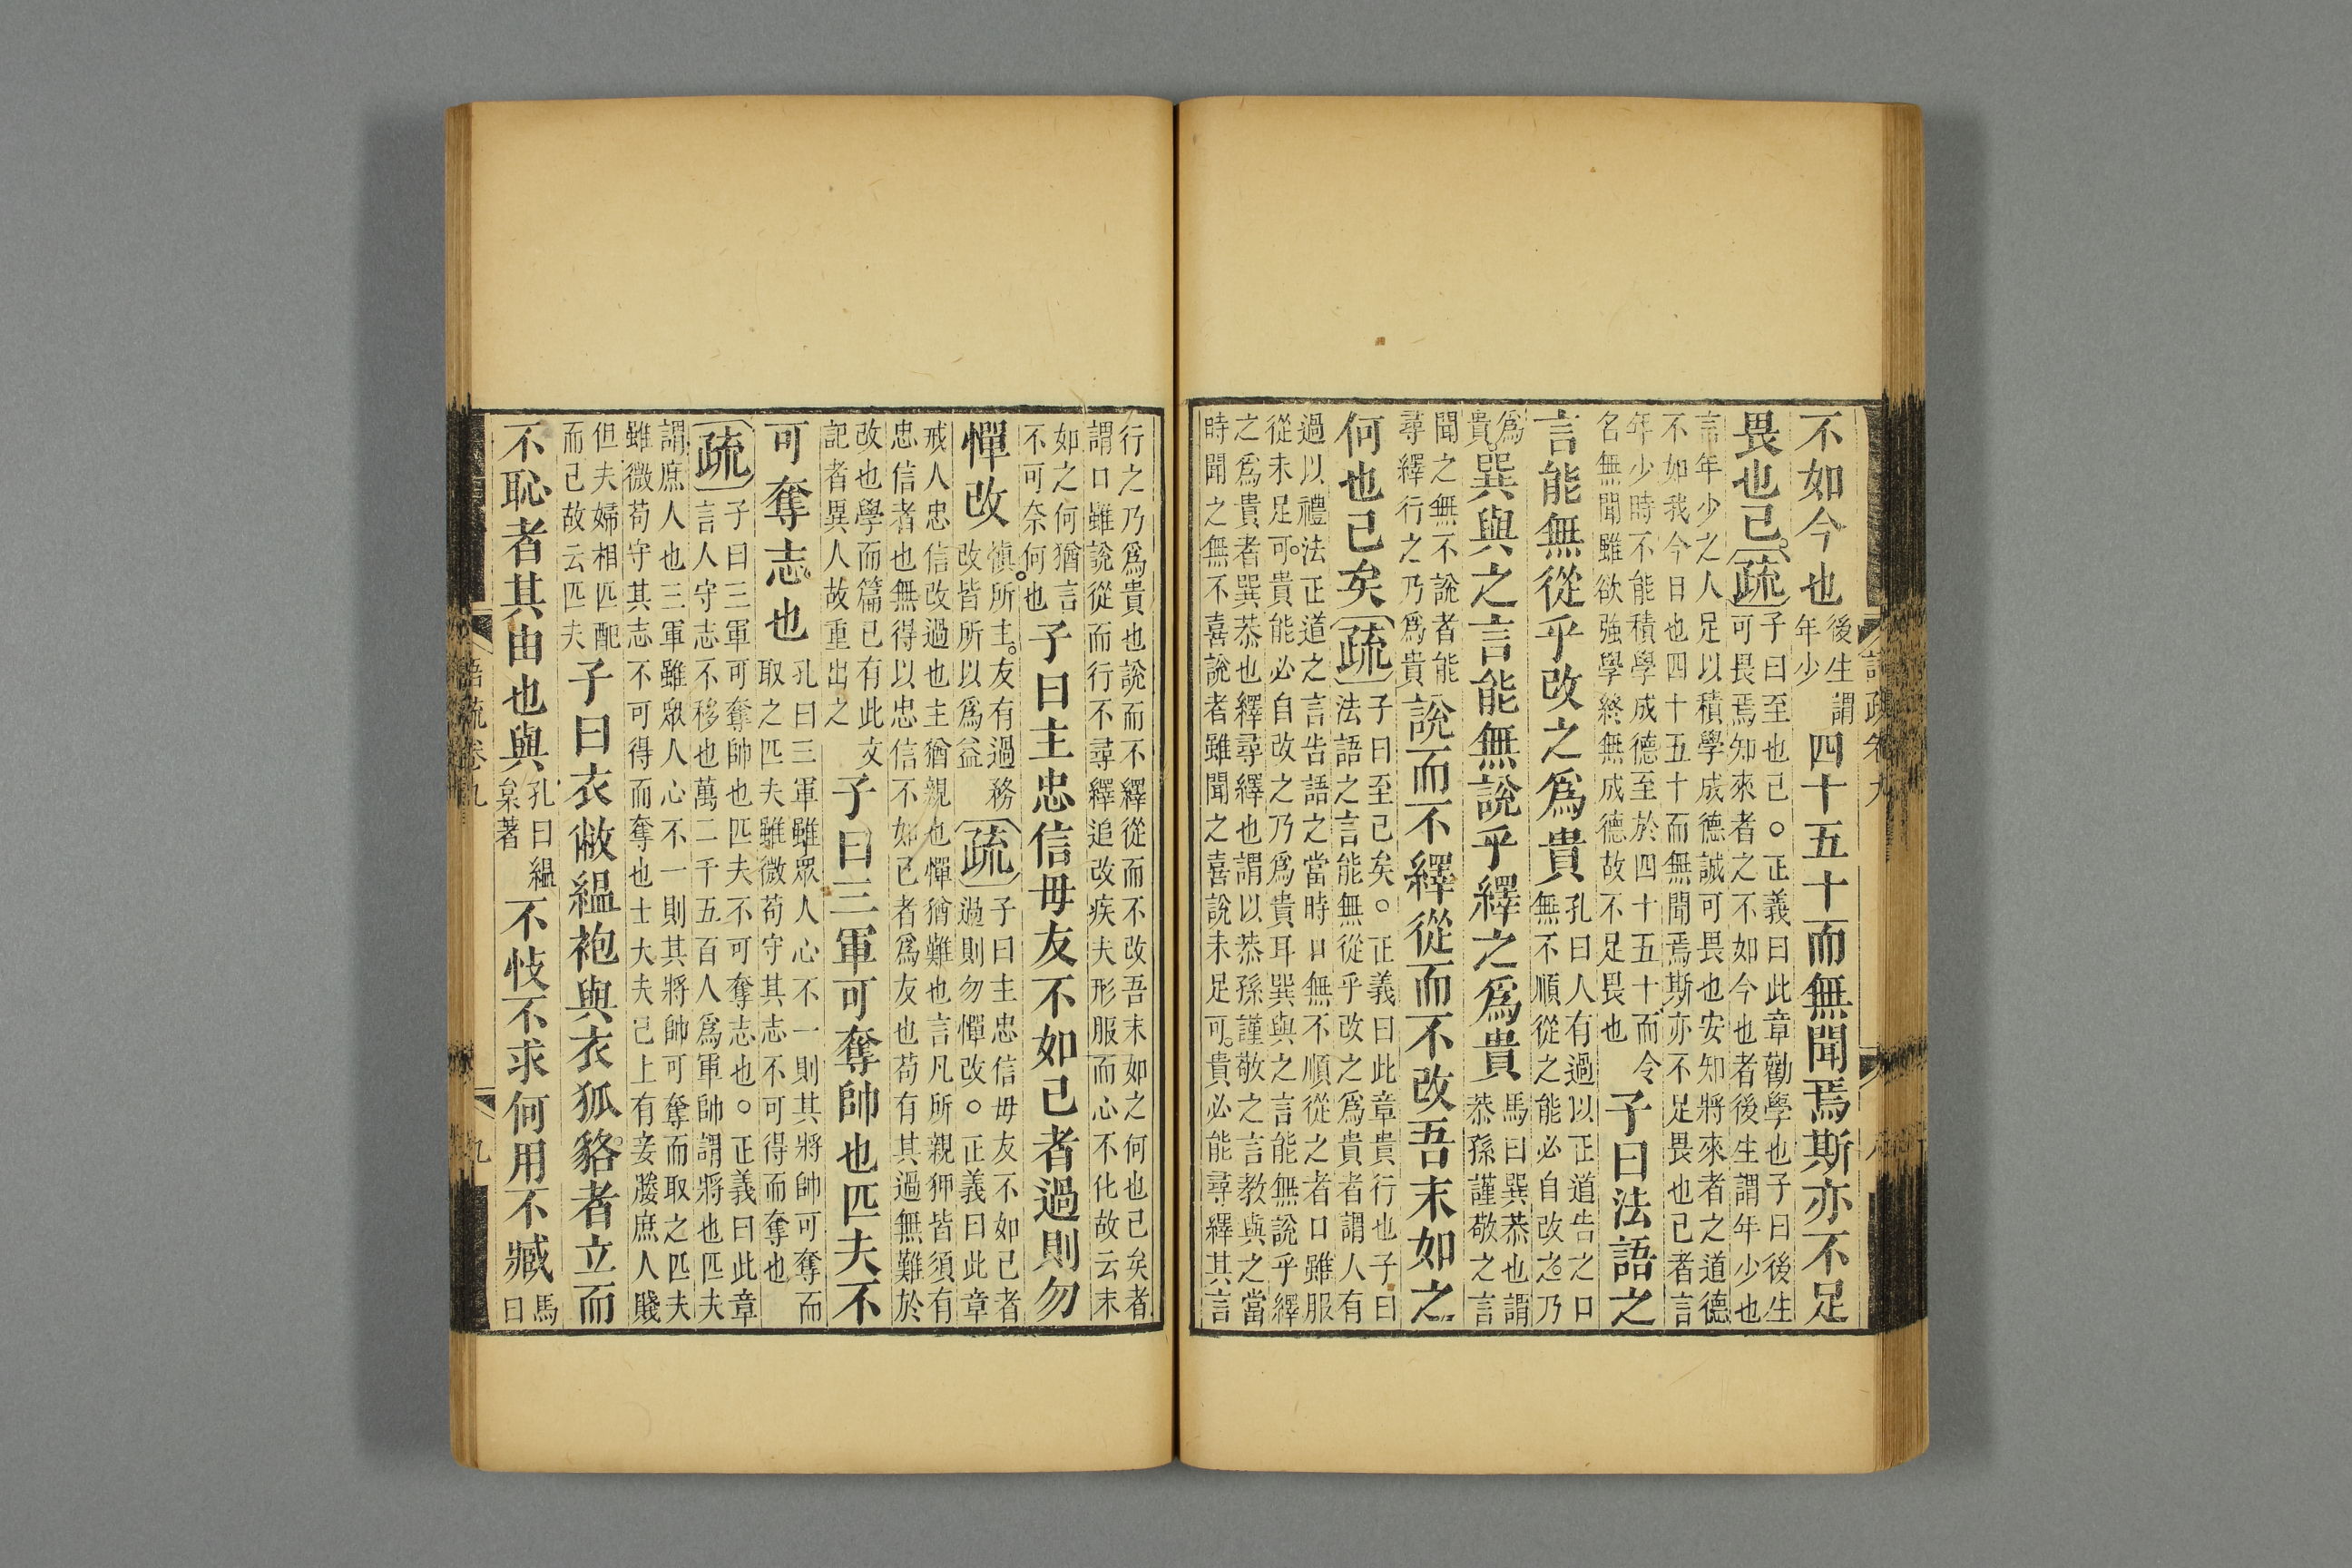 不如今也後生謂年少四十五十而無聞焉斯亦不足
畏也已疏子曰至也已○正義曰此章勸學也子曰後生可畏焉知來者之不如今也者後生謂年少也
言年少之人足以積學成德誠可畏也安知將來者之道德不如我今日也四十五十而無聞焉斯亦不足畏也已者言
年少時不能積學成德至於四十五十而令名無聞雖欲強學終無成德故不足畏也子曰法語之
言能無從乎改之爲貴孔曰人有過以正道告之口無不順從之能必自改之乃
爲貴巽與之言能無說乎繹之爲貴馬曰巽恭也謂恭孫謹敬之言
聞之無不說者能尋繹行之乃爲貴說而不繹從而不改吾末如之
何也已矣疏子曰至已矣○正義曰此章貴行也子曰法語之言能無從乎改之爲貴者謂人有
過以禮法正道之言告語之當時口無不順從之者口雖服從未足可貴能必自改之乃爲貴耳巽與之言能無說乎繹
之爲貴者巽恭也繹尋繹也謂以恭孫謹敬之言教與之當時聞之無不喜說者雖聞之喜說未足可貴必能尋繹其言
行之乃爲貴也說而不繹從而不改吾末如之何也已矣者謂口雖說從而行不尋繹追改疾夫形服而心不化故云末
如之何猶言不可奈何也子曰主忠信毋友不如己者過則勿
憚改慎所主友有過務改皆所以爲益疏子曰主忠信毋友不如己者過則勿憚改○正義曰此章
戒人忠信改過也主猶親也憚猶難也言凡所親狎皆須有忠信者也無得以忠信不如己者爲友也苟有其過無難於
改也學而篇已有此文記者異人故重出之子曰三軍可奪帥也匹夫不
可奪志也孔曰三軍雖眾人心不一則其將帥可奪而取之匹夫雖微苟守其志不可得而奪也
疏子曰三軍可奪帥也匹夫不可奪志也○正義曰此章言人守志不移也萬二千五百人爲軍帥謂將也匹夫
謂庶人也三軍雖眾人心不一則其將帥可奪而取之匹夫雖微苟守其志不可得而奪也士大夫已上有妾媵庶人賤
但夫婦相匹配而已故云匹夫子曰衣敝縕袍與衣狐貉者立而
不恥者其由也與孔曰縕枲著不忮不求何用不臧馬曰
語疏卷九 九